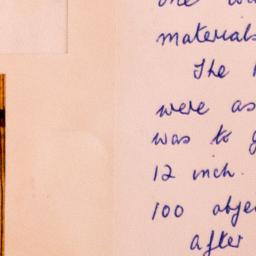 materials
The
were as
was to
12 inch.
100 obje
after